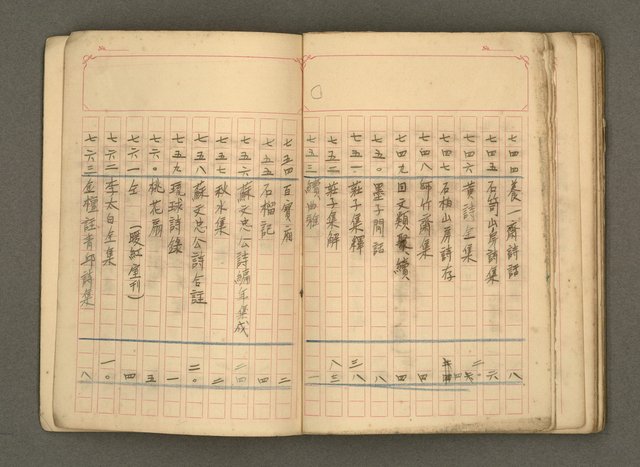 七四四 養一齋詩話 八
七四五 石笥山房詩集 六
七四六 黃詩全集
七四七 石柏山房詩存
七四八 師竹齋集 四
七四九 國文類聚續 四
七五〇 墨子閒詁 八
七五一 莊子集釋 八
七五二 莊子集解 三
七五三 續曲雅 一
七五四 百寶廂 二
七五五 石榴記 四
七五六 蘇文忠公詩編年集成 二四
七五七 秋水集 二
七五八 蘇文忠公詩合註 二〇
七五九 琉球詩錄 一
七六〇 桃花扇 五
七六一 仝 (暖紅室刊) 四
七六二 李太白全集 一〇
七六三 金檀註青邱詩集 八
No.
No.